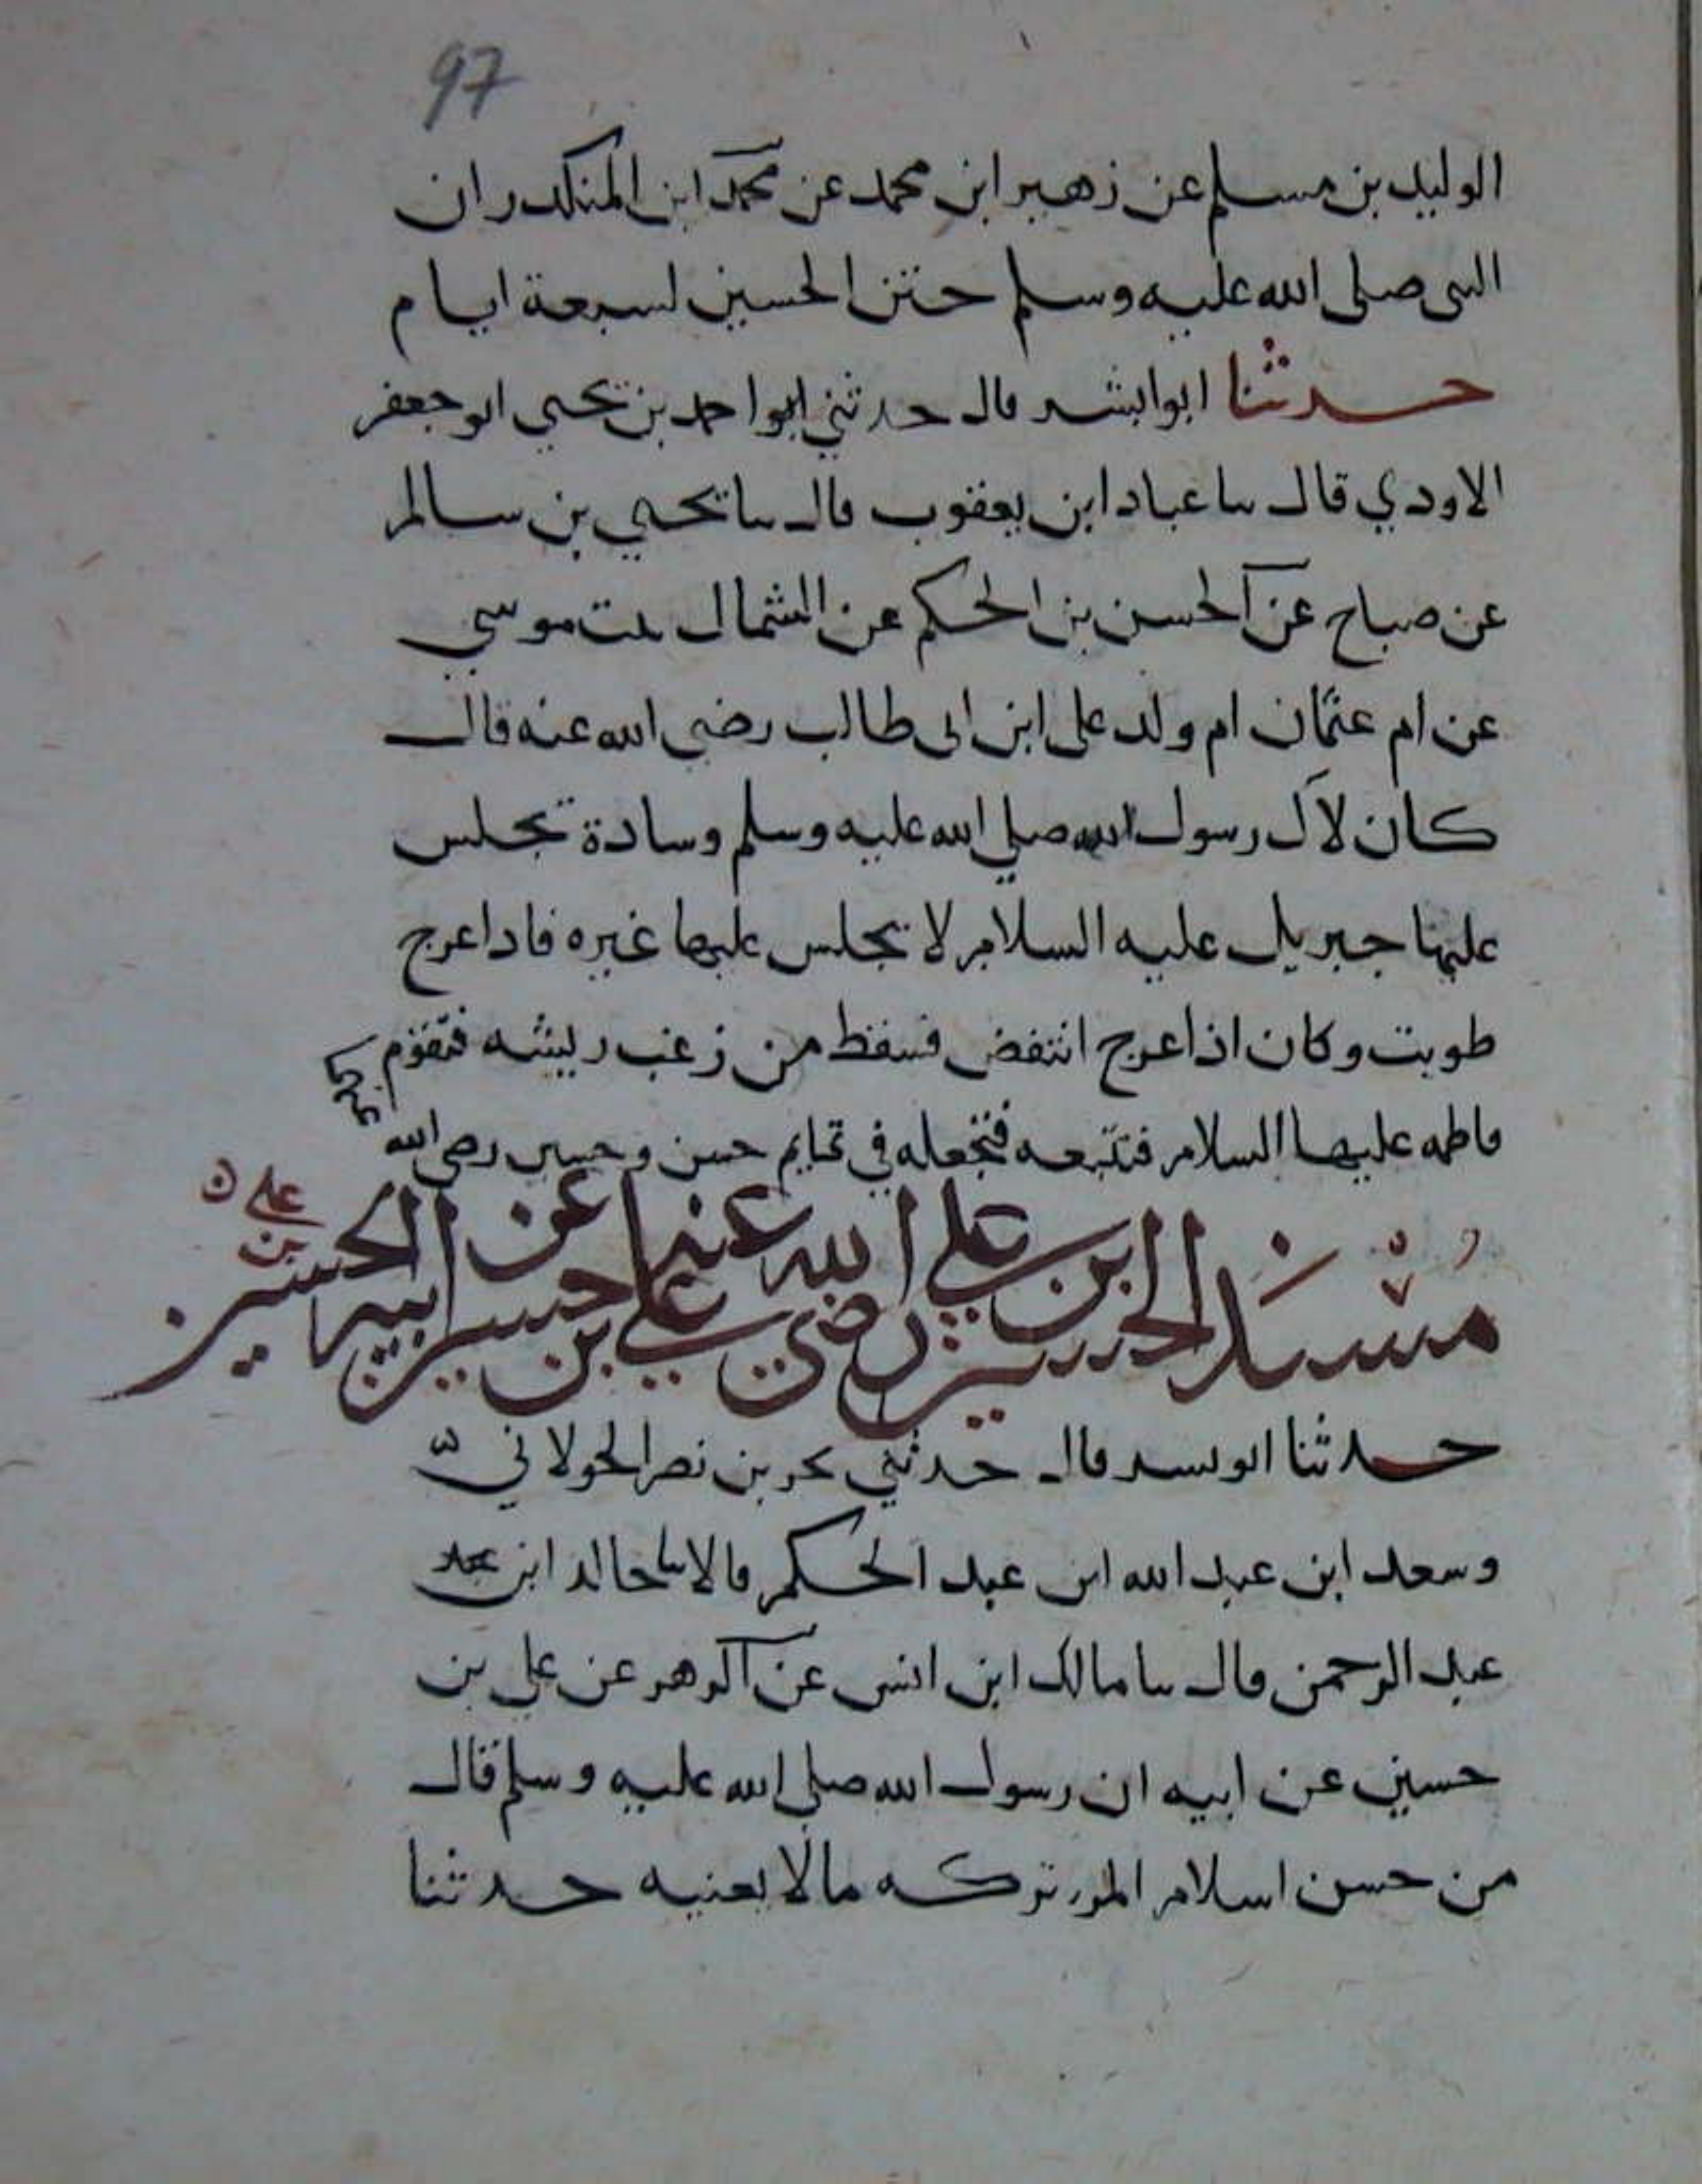 97
الوليد بن مسلم عن زهير ابن محمد عن محمد ابن المنكدر ان
النبى صلى الله عليه وسلم ختن الحسين لسبعة ايام
حدثنا ابوا بشر قال حدثني ابوا احمد بن يحيى ابو جعفر
الاودي قال سا عباد ابن يعقوب قال سا يحيي بن سالم
عن صباح عن الحسن بن الحكم عن الشمال بنت موسي
عن ام عثمان ام ولد على ابن ابى طالب رضي الله عنه قال
كان لآل رسول الله صلي الله عليه وسلم وسادة تجلس
عليها جبريل عليه السلام لا تجلس عليها غيره فاذا عرج
طويت وكان اذا عرج انتفض فسقط من زغب ريشه فتقوم
فاطمه عليها السلام فتتبعه فتجعله في تمايم حسن وحسين رضى الله عنهما
مُسْنَد الحسين ابن علي رضي الله عنهما علي بن حسين عن ابيه الحسين بن علي
حدثنا ابو بشر قال حدثني بحر بن نصر الخولاني
وسعد ابن عبد الله ابن عبد الحكم قالا سا خالد ابن
عبد الرحمن قال سا مالك ابن انس عن الزهر عن علي بن
حسين عن ابيه ان رسول الله صلي الله عليه وسلم قال
من حسن اسلام المرء تركه مالا يعنيه حدثنا